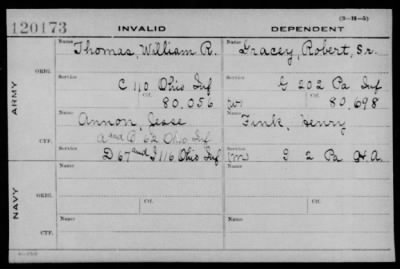 (3-H-5)
120173 INVALID DEPENDENT
Name Name
Thomas, William R. Gracey, Robert, Sr.
ORIG.
Service Service
C 110 Ohio Inf G 202 Pa Inf
Ctf. Ctf.
80,056 (W) 80,698
ARMY
Name Name
Annon, Jesse Fink, Henry
A and B 62 Ohio Inf
CTF.
Service Service
D 67 and I 116 Ohio Inf (M) G 2 Pa H.A.
Name Name
ORIG.
Service Service
Ctf. Ctf.
NAVY
Name Name
CTF.
Service Service